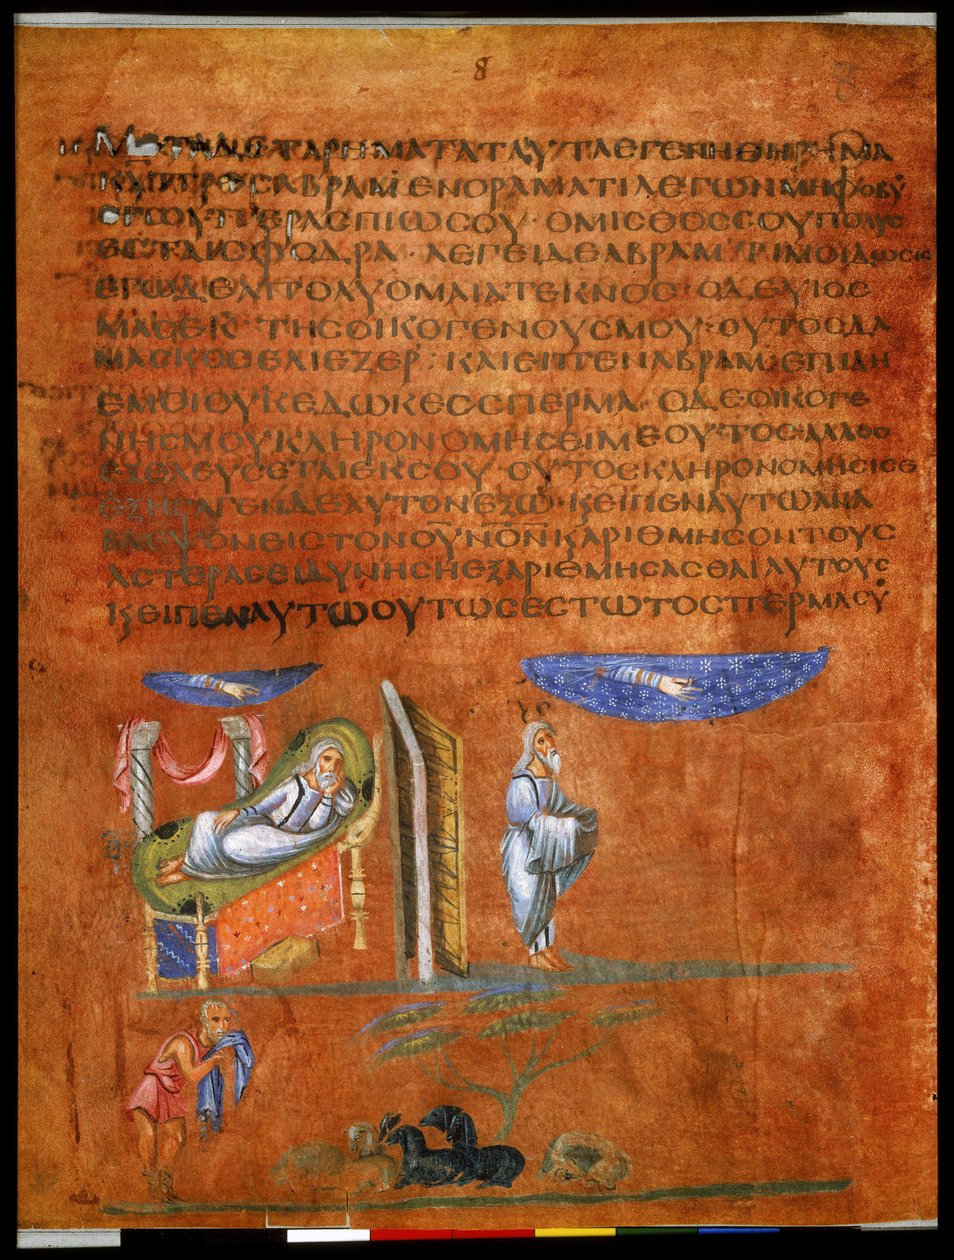 8
ΜΕΤΑΔΕΤΑΡΗΜΑΤΑΤΑΥΤΑΕΓΕΝΗΘΗΡΗΜΑ
Κ͞ΥΠΡΟϹΑΒΡΑΜΕΝΟΡΑΜΑΤΙΛΕΓΩΝΜΗΦΟΒΟΥ
ΕΓΩΥΠΕΡΑϹΠΙΩϹΟΥ·ΟΜΙϹΘΟϹϹΟΥΠΟΛΥϹ
ΕϹΤΑΙϹΦΟΔΡΑ·ΛΕΓΕΙΔΕΑΒΡΑΜ·ΤΙΜΟΙΔΩϹΙϹ
ΕΓΩΔΕΑΠΟΛΥΟΜΑΙΑΤΕΚΝΟϹ·ΟΔΕΥΙΟϹ
ΜΑϹΕΚ·ΤΗϹΟΙΚΟΓΕΝΟΥϹΜΟΥ·ΟΥΤΟϹΔΑ
ΜΑϹΚΟϹΕΛΙΕΖΕΡ:ΚΑΙΕΙΠΕΝΑΒΡΑΜ·ΕΠΙΔΗ
ΕΜΟΙΟΥΚΕΔΩΚΕϹϹΠΕΡΜΑ·ΟΔΕΟΙΚΟΓΕ
ΝΗϹΜΟΥΚΛΗΡΟΝΟΜΗϹΕΙΜΕΟΥΤΟϹ·ΑΛΛΟϹ
ΕΞΕΛΕΥϹΕΤΑΙΕΚϹΟΥ·ΟΥΤΟϹΚΛΗΡΟΝΟΜΗϹΙϹΕ
ΕΞΗΓΑΓΕΝΔΕΑΥΤΟΝΕΞΩ·ϏΕΙΠΕΝΑΥΤΩΑΝΑ
ΒΛΕΨΟΝΕΙϹΤΟΝΟΥΝΟΝϏΑΡΙΘΜΗϹΟΝΤΟΥϹ
ΑϹΤΕΡΑϹΕΙΔΥΝΗϹΗΕΞΑΡΙΘΜΗϹΑϹΘΑΙΑΥΤΟΥϹ
ϏΕΙΠΕΝΑΥΤΩΟΥΤΩϹΕϹΤΩΤΟϹΠΕΡΜΑϹΟΥ